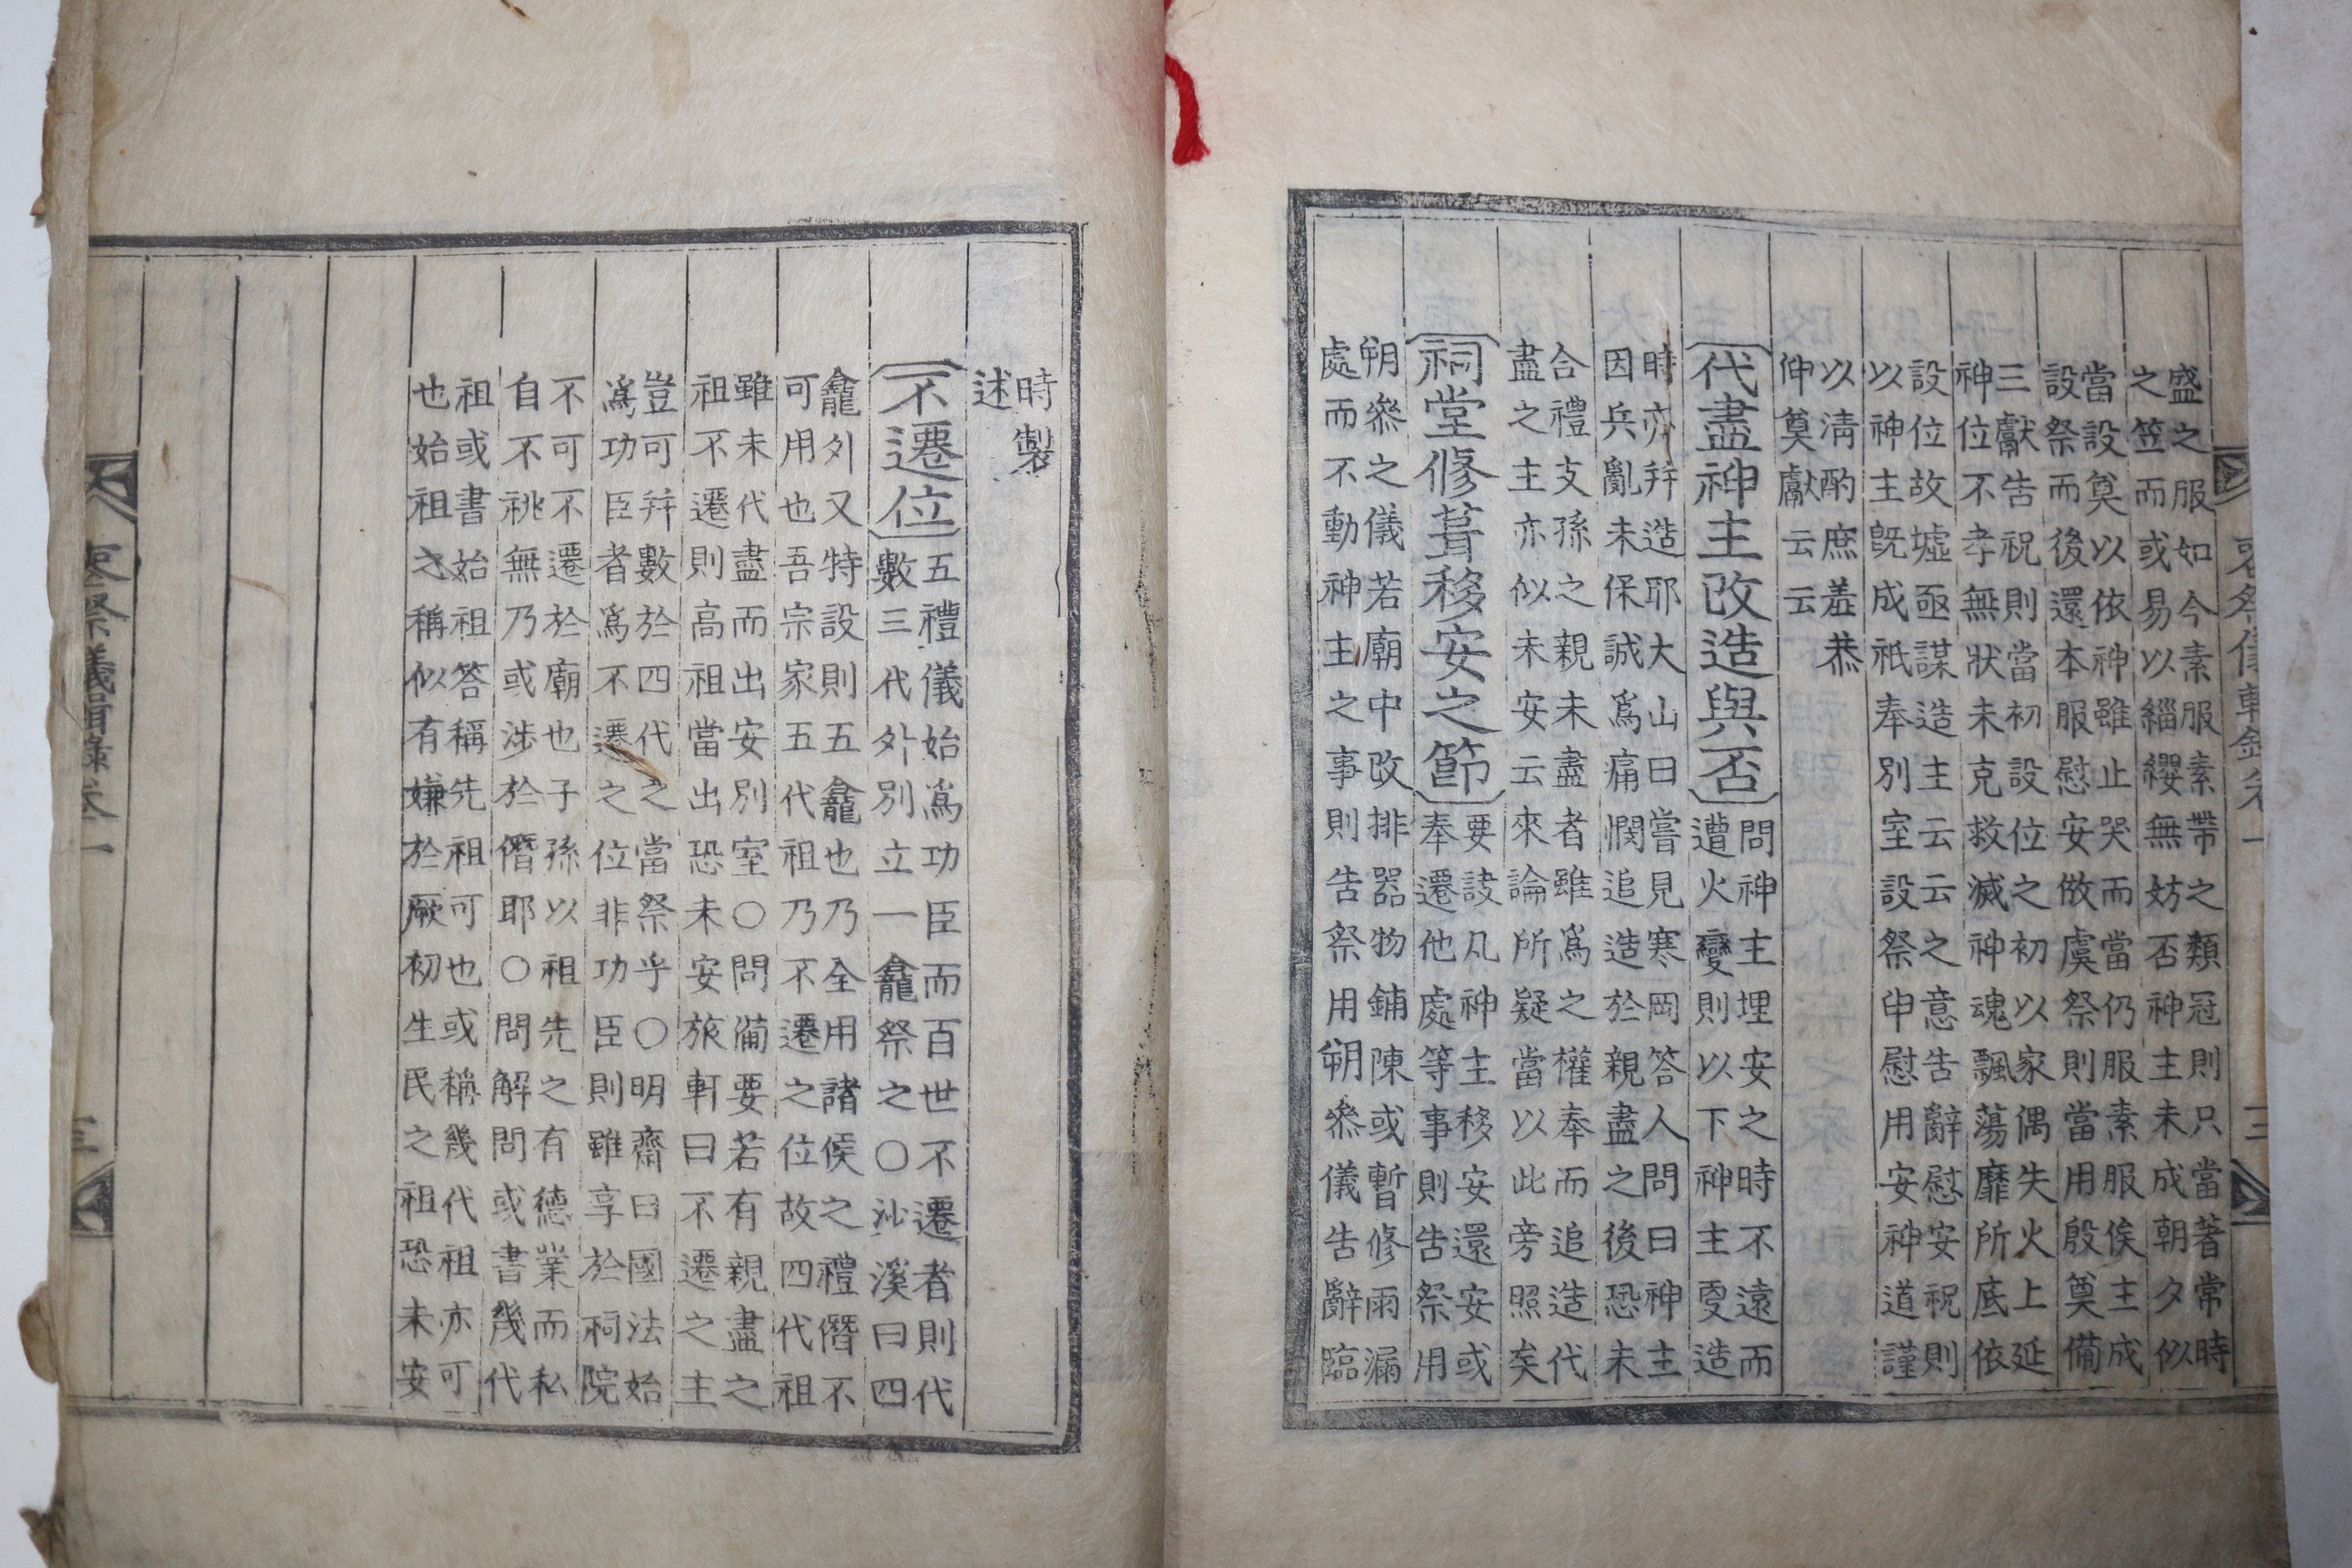 盛之服如今素服素帶之類冠則只當著常時
之笠而或易以緇纓無妨否神主未成朝夕似
當設奠以依神雖止哭而當仍服素服俟主成
設祭而後還本服慰安倣虞祭則當用殷奠備
三獻告祝則當初設位之初以家偶失火上延
神位不孝無狀未克救滅神魂飄蕩靡所底依
設位故墟亟謀造主云云之意告辭慰安祝則
以神主旣成祇奉別室設祭申慰用安神道謹
以淸酌庶羞恭
伸奠獻云云
代盡神主改造與否
問神主埋安之時不遠而
遭火變則以下神主㪅造
時亦幷造耶大山曰嘗見寒岡答人問曰神主
因兵亂未保誠爲痛憫追造於親盡之後恐未
合禮支孫之親未盡者雖爲之權奉而追造代
盡之主亦似未安云來論所疑當以此旁照矣
祠堂修葺移安之節
要訣凡神主移安還安或
奉遷他處等事則告祭用
朔叅之儀若廟中改排器物鋪陳或暫修雨漏
處而不動神主之事則告祭用朔叅儀告辭臨
時製
述
不遷位
五禮儀始爲功臣而百世不遷者則代
數三代外別立一龕祭之○沙溪曰四
龕外又特設則五龕也乃全用諸侯之禮僭不
可用也吾宗家五代祖乃不遷之位故四代祖
雖未代盡而出安別室○問備要若有親盡之
祖不遷則高祖當出恐未安旅軒曰不遷之主
豈可幷數於四代之當祭乎○明齋曰國法始
爲功臣者爲不遷之位非功臣則雖享於祠院
不可不遷於廟也子孫以祖先之有德業而私
自不祧無乃或涉於僭耶○問解問或書幾代
祖或書始祖答稱先祖可也或稱幾代祖亦可
也始祖之稱似有嫌於厥初生民之祖恐未安